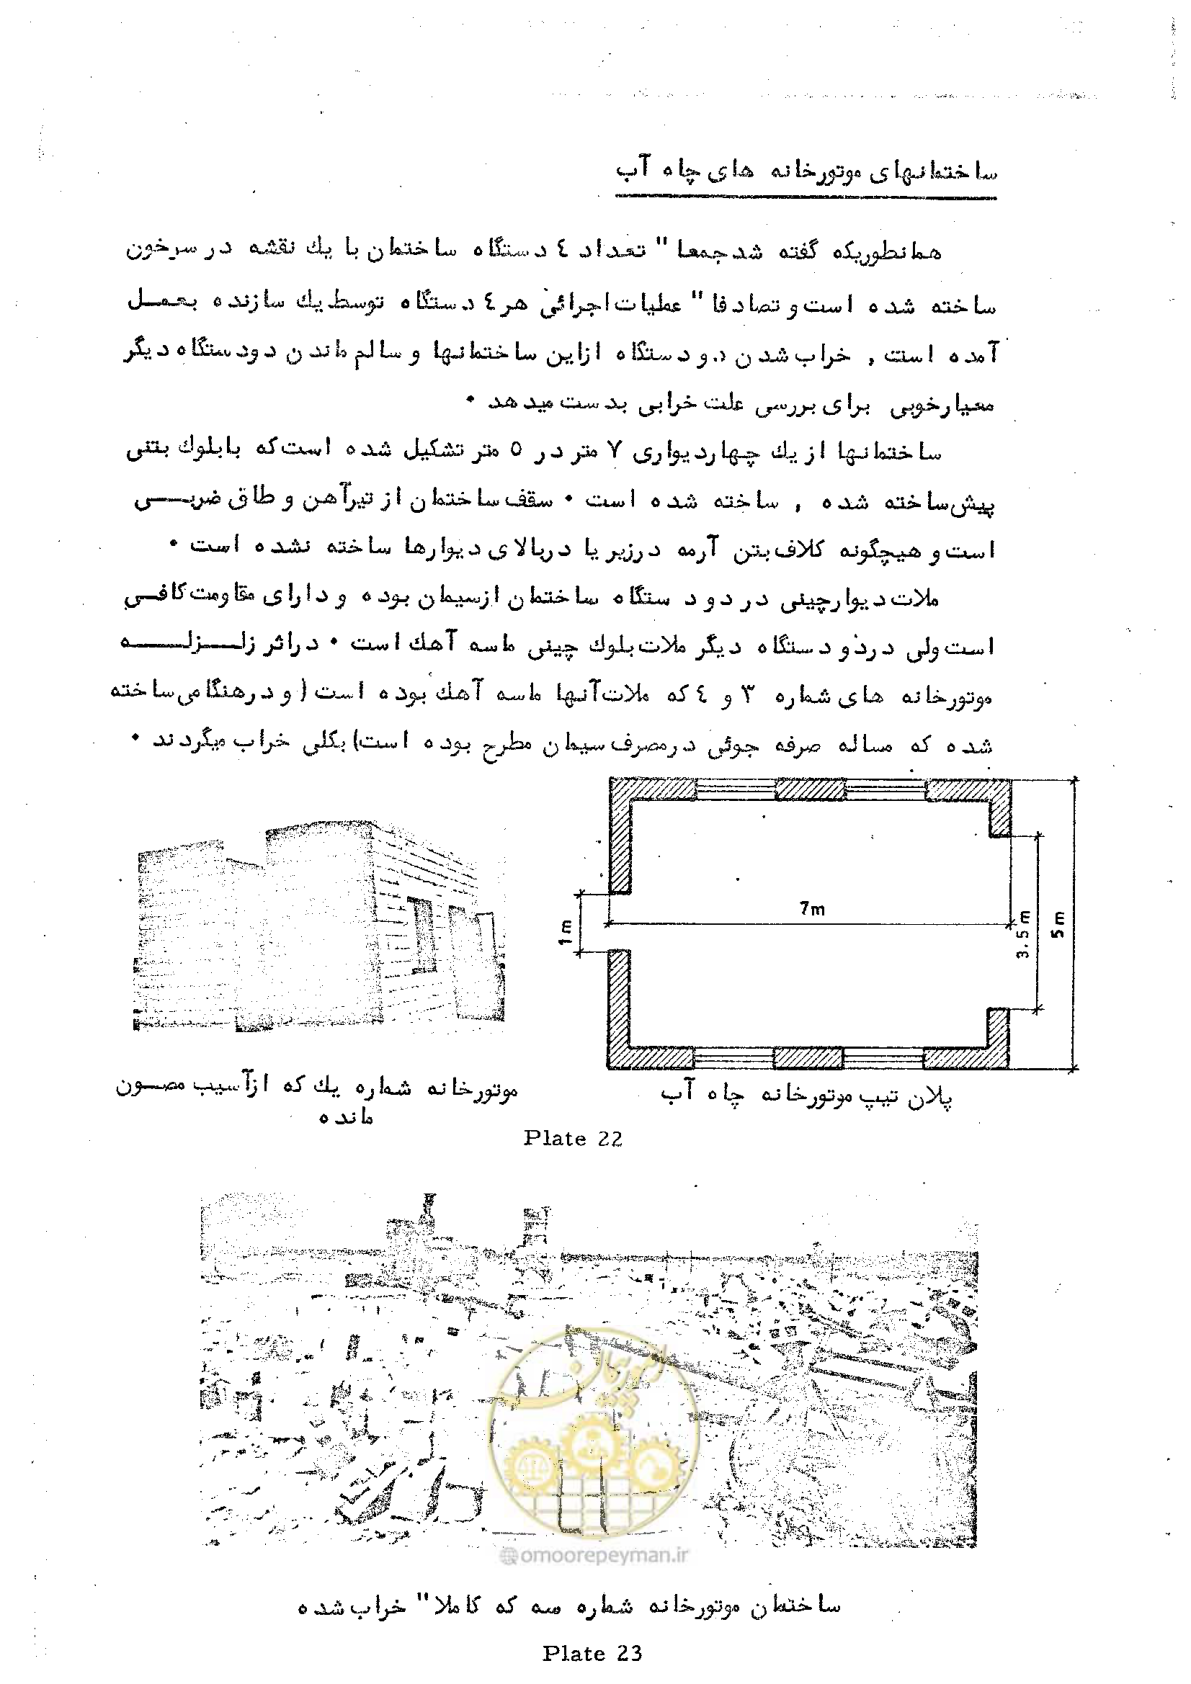 ساختمانهای موتورخانه های چاه آب
همانطوریکه گفته شد جمعا" تعداد ٤ دستگاه ساختمان با یك نقشه در سرخون
ساخته شده است و تصادفا" عملیات اجرائی هر ٤ دستگاه توسط یك سازنده بعمـل
آمده است , خراب شدن دو دستگاه از این ساختمانها و سالم ماندن دو دستگاه دیگر
معیار خوبی برای بررسی علت خرابی بدست میدهد •
ساختمانها از یك چهاردیواری ۷ متر در ٥ متر تشکیل شده است که با بلوك بتنی
پیش ساخته شده , ساخته شده است • سقف ساختمان از تیرآهن و طاق ضربـــی
است و هیچگونه کلاف بتن آرمه در زیر یا در بالای دیوارها ساخته نشده است •
ملات دیوارچینی در دو دستگاه ساختمان از سیمان بوده و دارای مقاومت کافـی
است ولی در دو دستگاه دیگر ملات بلوك چینی ماسه آهك است • در اثر زلـــزلـــه
موتورخانه های شماره ۳ و ٤ که ملات آنها ماسه آهك بوده است ( و در هنگامی ساخته
شده که مساله صرفه جوئی در مصرف سیمان مطرح بوده است) بکلی خراب میگردند •
7m
1m
3.5m
5m
پلان تیپ موتورخانه چاه آب
موتورخانه شماره یك که از آسیب مصــون
مانده
Plate 22
امور پیمان
@omoorepeyman.ir
ساختمان موتورخانه شماره سه که کاملا" خراب شده
Plate 23